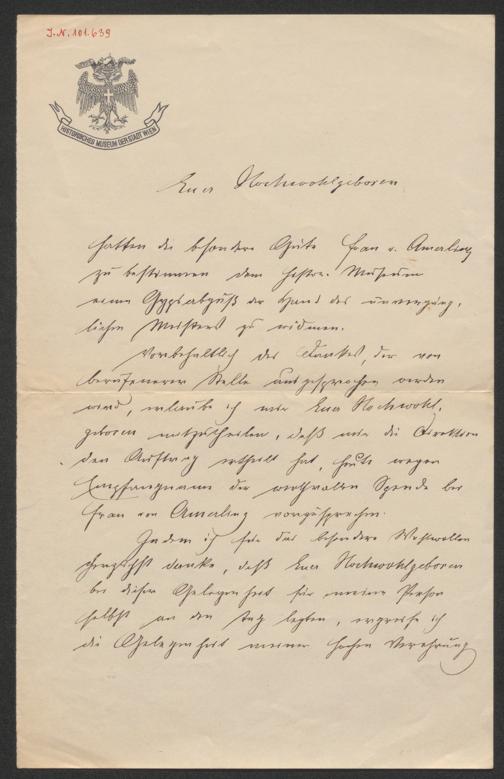 J.N. 101.639
HISTORISCHES MUSEUM DER STADT WIEN
Euer Hochwohlgeboren
hatten die besondere Güte Frau v. Amerling
zu bestimmen dem histor. Museum
einen Gypsabguß der Hand des unvergäng-
lichen Meisters zu widmen.
Vorbehaltlich des Dankes, der von
berufenerer Stelle ausgesprochen werden
wird, erlaube ich mir Euer Hochwohl-
geboren mitzutheilen, daß mir die Direktion
den Auftrag ertheilt hat, heute wegen
Empfangname der werthvollen Spende bei
Frau von Amerling vorzusprechen.
Indem ich für das besondere Wohlwollen
herzlichst danke, daß Euer Hochwohlgeboren
bei dieser Gelegenheit für meine Person
selbst an den Tag legten, ergreife ich
die Gelegenheit meiner hohen Verehrung